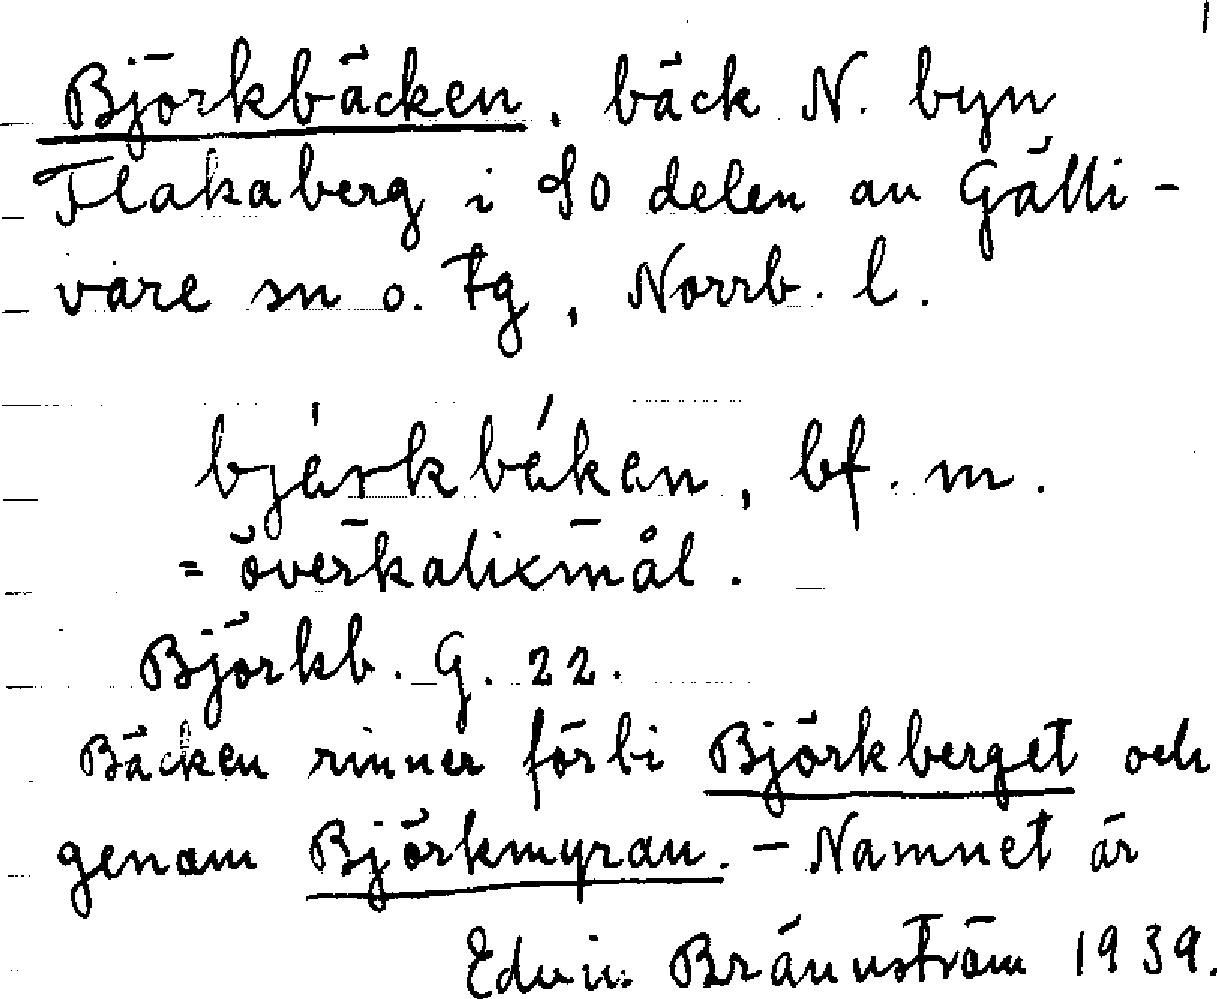 1
Björkbäcken, bäck N. byn
Flakaberg i SO delen av Gälli-
vare sn o. tg, Norrb. l.
bjárkbäken, bf. m.
= överkalixmål.
Björkb. G. 22.
Bäcken rinner förbi Björkberget och
genom Björkmyran. – Namnet är
Edvin Brännström 1939.